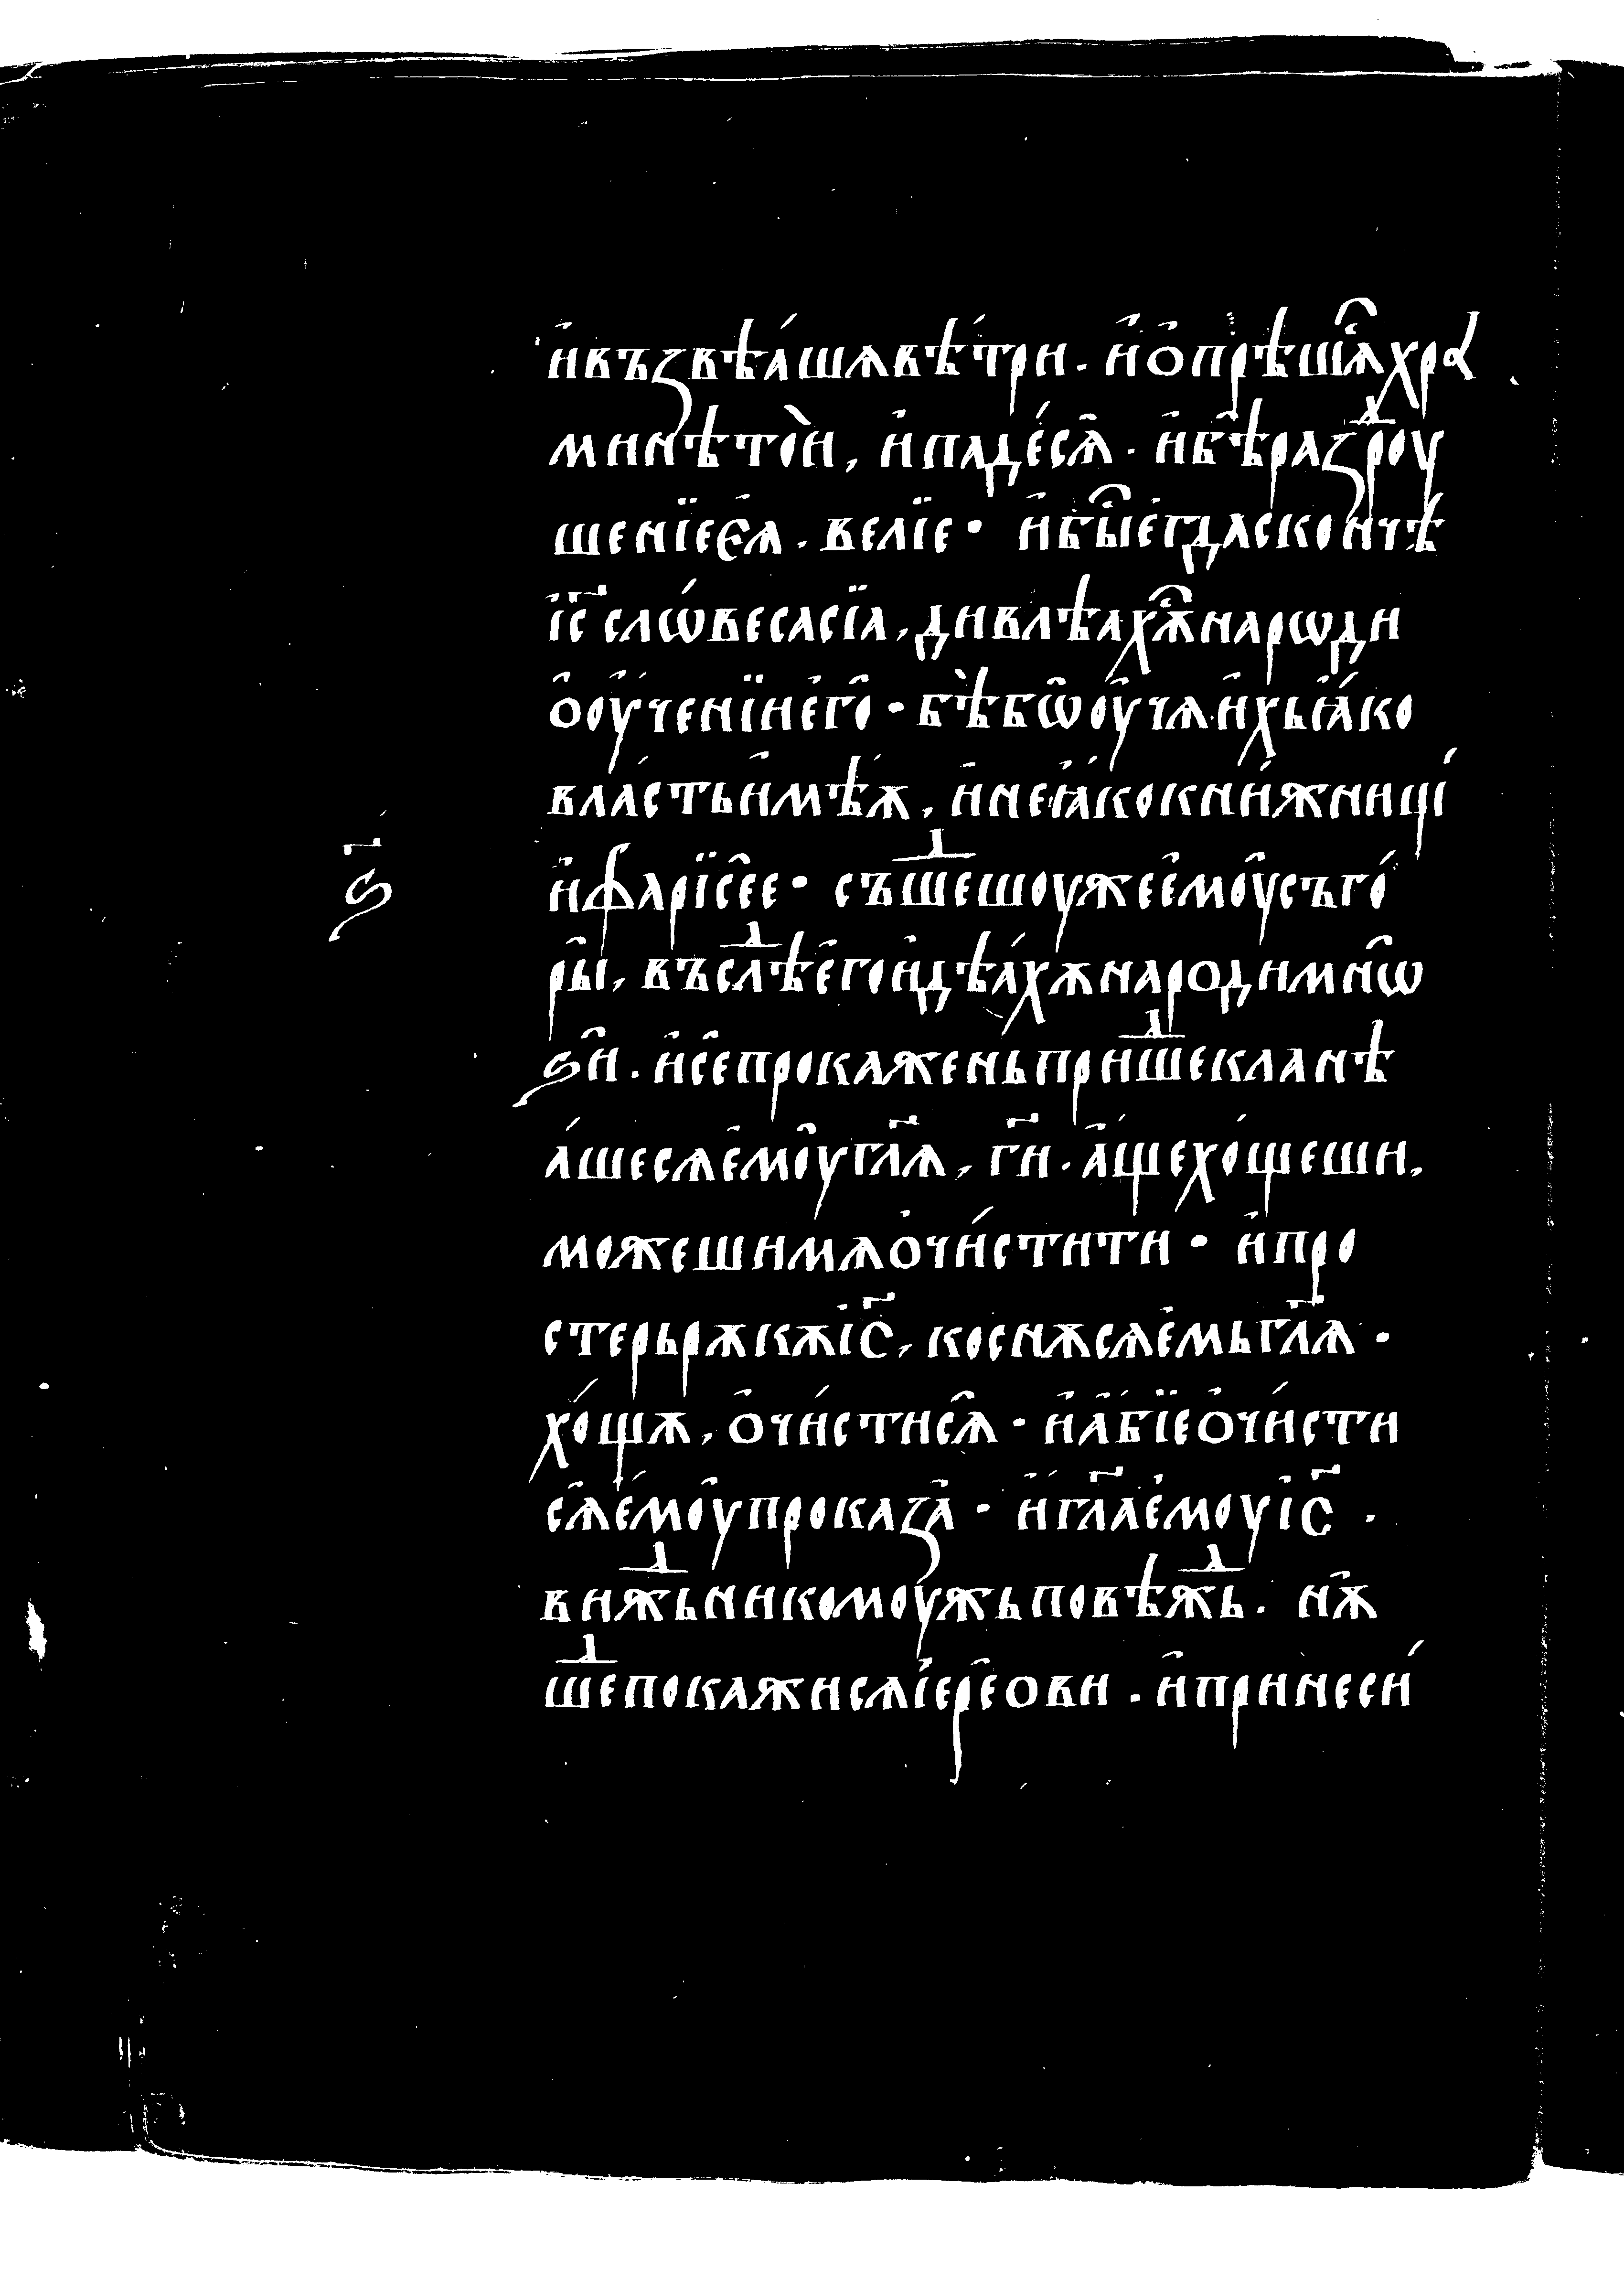 и҆въꙁвѣа́шѧвѣ́три. и҆ѻ҆прѣшѧ҄хра
минѣто̀и, и҆паде́сѧ. и҆бы҄ра҄ꙁдроу
шенїеєѧ. велїе· и҆бы҄е҆гдасконъчѣ
і҆с҃ слѡ́весасїа, дивлѣахѫ҄нарѡди
ѻ҆оу҆ченїие҆го҄· бѣ̀бѡ҄оу҆чѧи҆хьꙗ҆́ко
вла́стьи҆мѣ́ѫ, и҆неꙗ҆́кокни́жници́
и҆фарїсе҄е· съшⷣешоужее҆моу҄съго́
ры҄, въслⷣѣе҆гои҆дѣа́хѫнародимнѡ҄
ѕи҄. и҆се҄епрокаженьпришⷣекланѣ
а́шесѧе҆моу҄гл҃ѧ, ги҃. а҆́щехо́щеши,
можешимѧо҆чи́стити· и҆про
стерьрѫкѫі҆с҃, коснѫсѧе҆мьгл҃ѧ·
хо́щѫ, ѻ҆чи́стисѧ҄· и҆а҆́бїеѻ҆чи́сти
сѧ҄е҆моу҄проказа҆· и҆гл҃ае҆моуі҆с҃.
виждⷣьникомоужьповѣждⷣь. нѫ҄
шⷣепокажисѧі҆ере҄ови. и҆принеси́
ѕ҃і